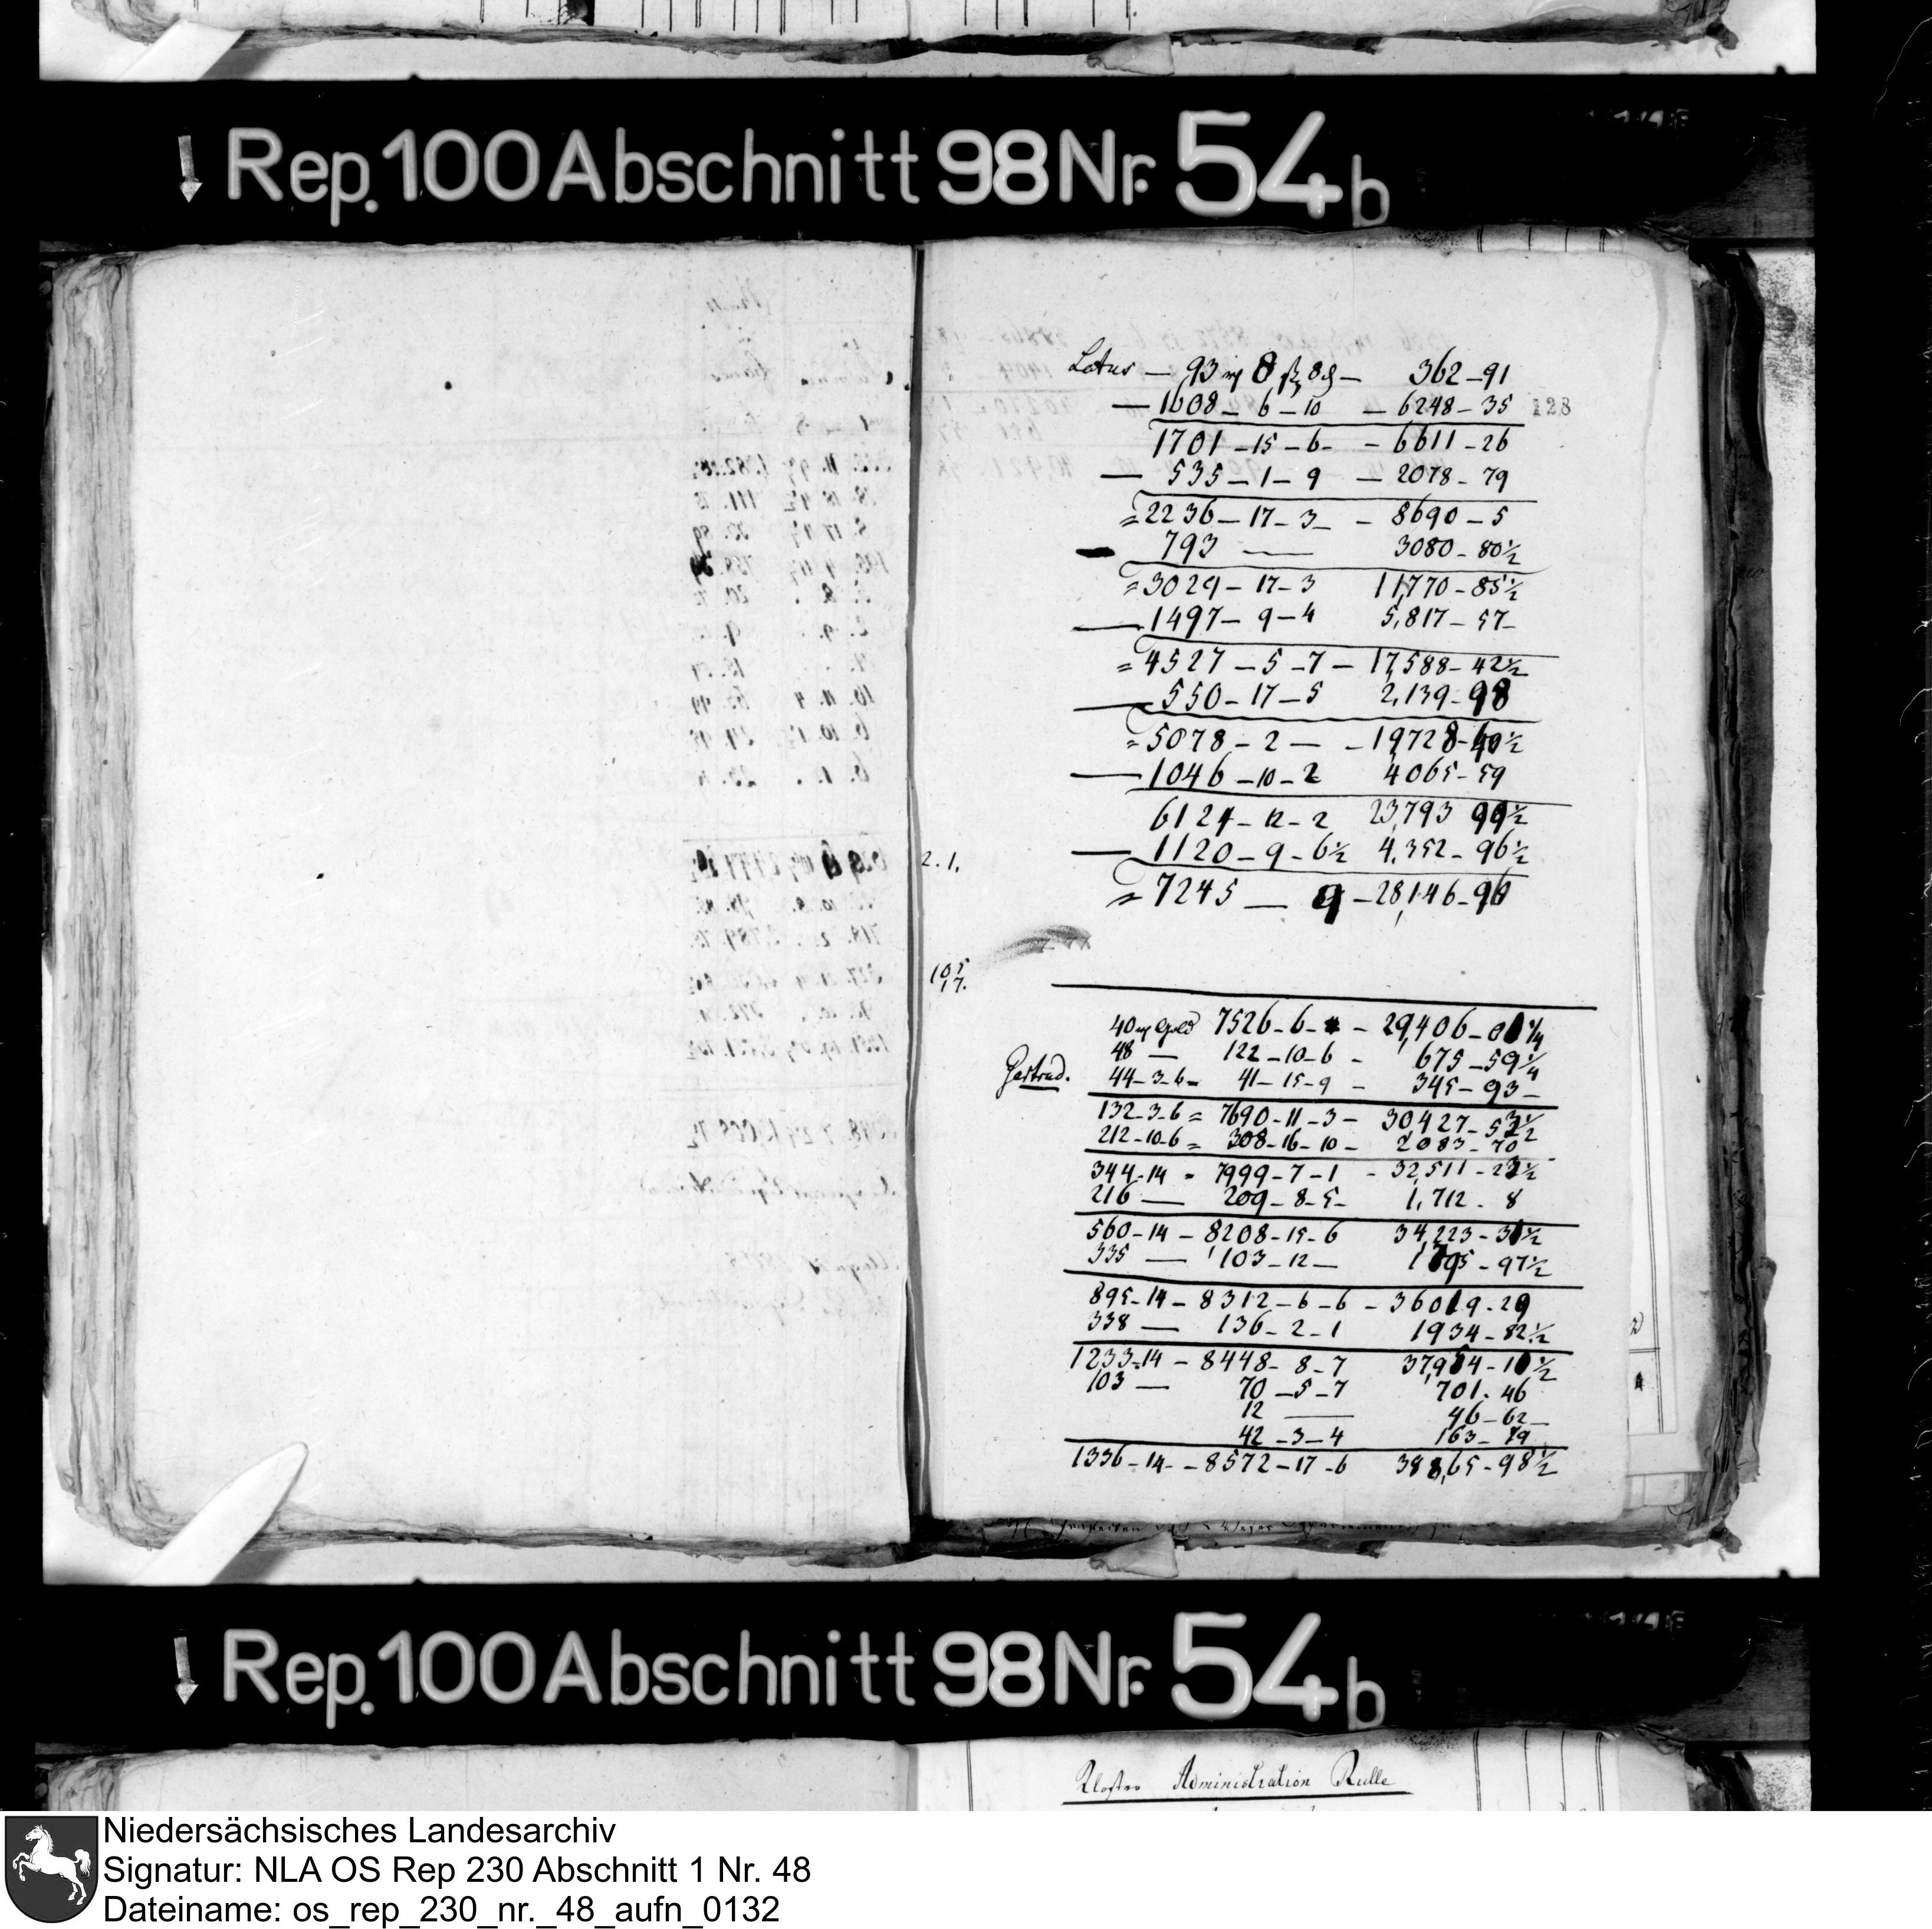 Rep. 100 Abschnitt 98 Nr. 54b
Latus — 93 rf 8 ß 8 d — 362 – 91
— 1608 – 6 – 10 — 6248 – 35
128
1701 – 15 – 6 – – 6611 – 26
— 535 – 1 – 9 — 2078 – 79
= 2236 – 17 – 3 – – 8690 – 5
793 — 3080 – 80½
= 3029 – 17 – 3 11,770 – 85½
— 1497 – 9 – 4 5,817 – 57 –
= 4527 – 5 – 7 – 17,588 – 42½
— 550 – 17 – 5 2,139 – 98
= 5078 – 2 — – 19,728 – 40½
— 1046 – 10 – 2 4065 – 59
6124 – 12 – 2 23,793 99½
2. 1.
— 1120 – 9 – 6½ 4,352 – 96½
= 7245 — 9 – 28,146 – 96
105
17.
40 rf Gold 7526 – 6 – – 29,406 – 0 ¼
48 — 122 – 10 – 6 – 675 – 59¼
Gertrud. 44 – 3 – 6 = 41 – 15 – 9 – 345 – 93 –
132 – 3 – 6 = 7690 – 11 – 3 – 30427 – 53½
212 – 10 – 6 = 308 – 16 – 10 – 2083 – 70
344 – 14 = 7999 – 7 – 1 – 32,511 – 23½
216 — 209 – 8 – 5 – 1,712 . 8
560 – 14 – 8208 – 15 – 6 34,223 – 31½
335 — 103 – 12 — 1795 – 97½
895 – 14 – 8312 – 6 – 6 – 36019 – 29
338 — 136 – 2 – 1 1934 – 82½
1233 – 14 – 8448 – 8 – 7 37,954 – 11½
103 — 70 – 5 – 7 701 . 46
12 — 46 – 62 –
42 – 3 – 4 163 – 79
1336 – 14 – – 8572 – 17 – 6 388,65 – 98½
Rep. 100 Abschnitt 98 Nr. 54b
Kloster Administration Rulle
Niedersächsisches Landesarchiv
Signatur: NLA OS Rep 230 Abschnitt 1 Nr. 48
Dateiname: os_rep_230_nr._48_aufn_0132